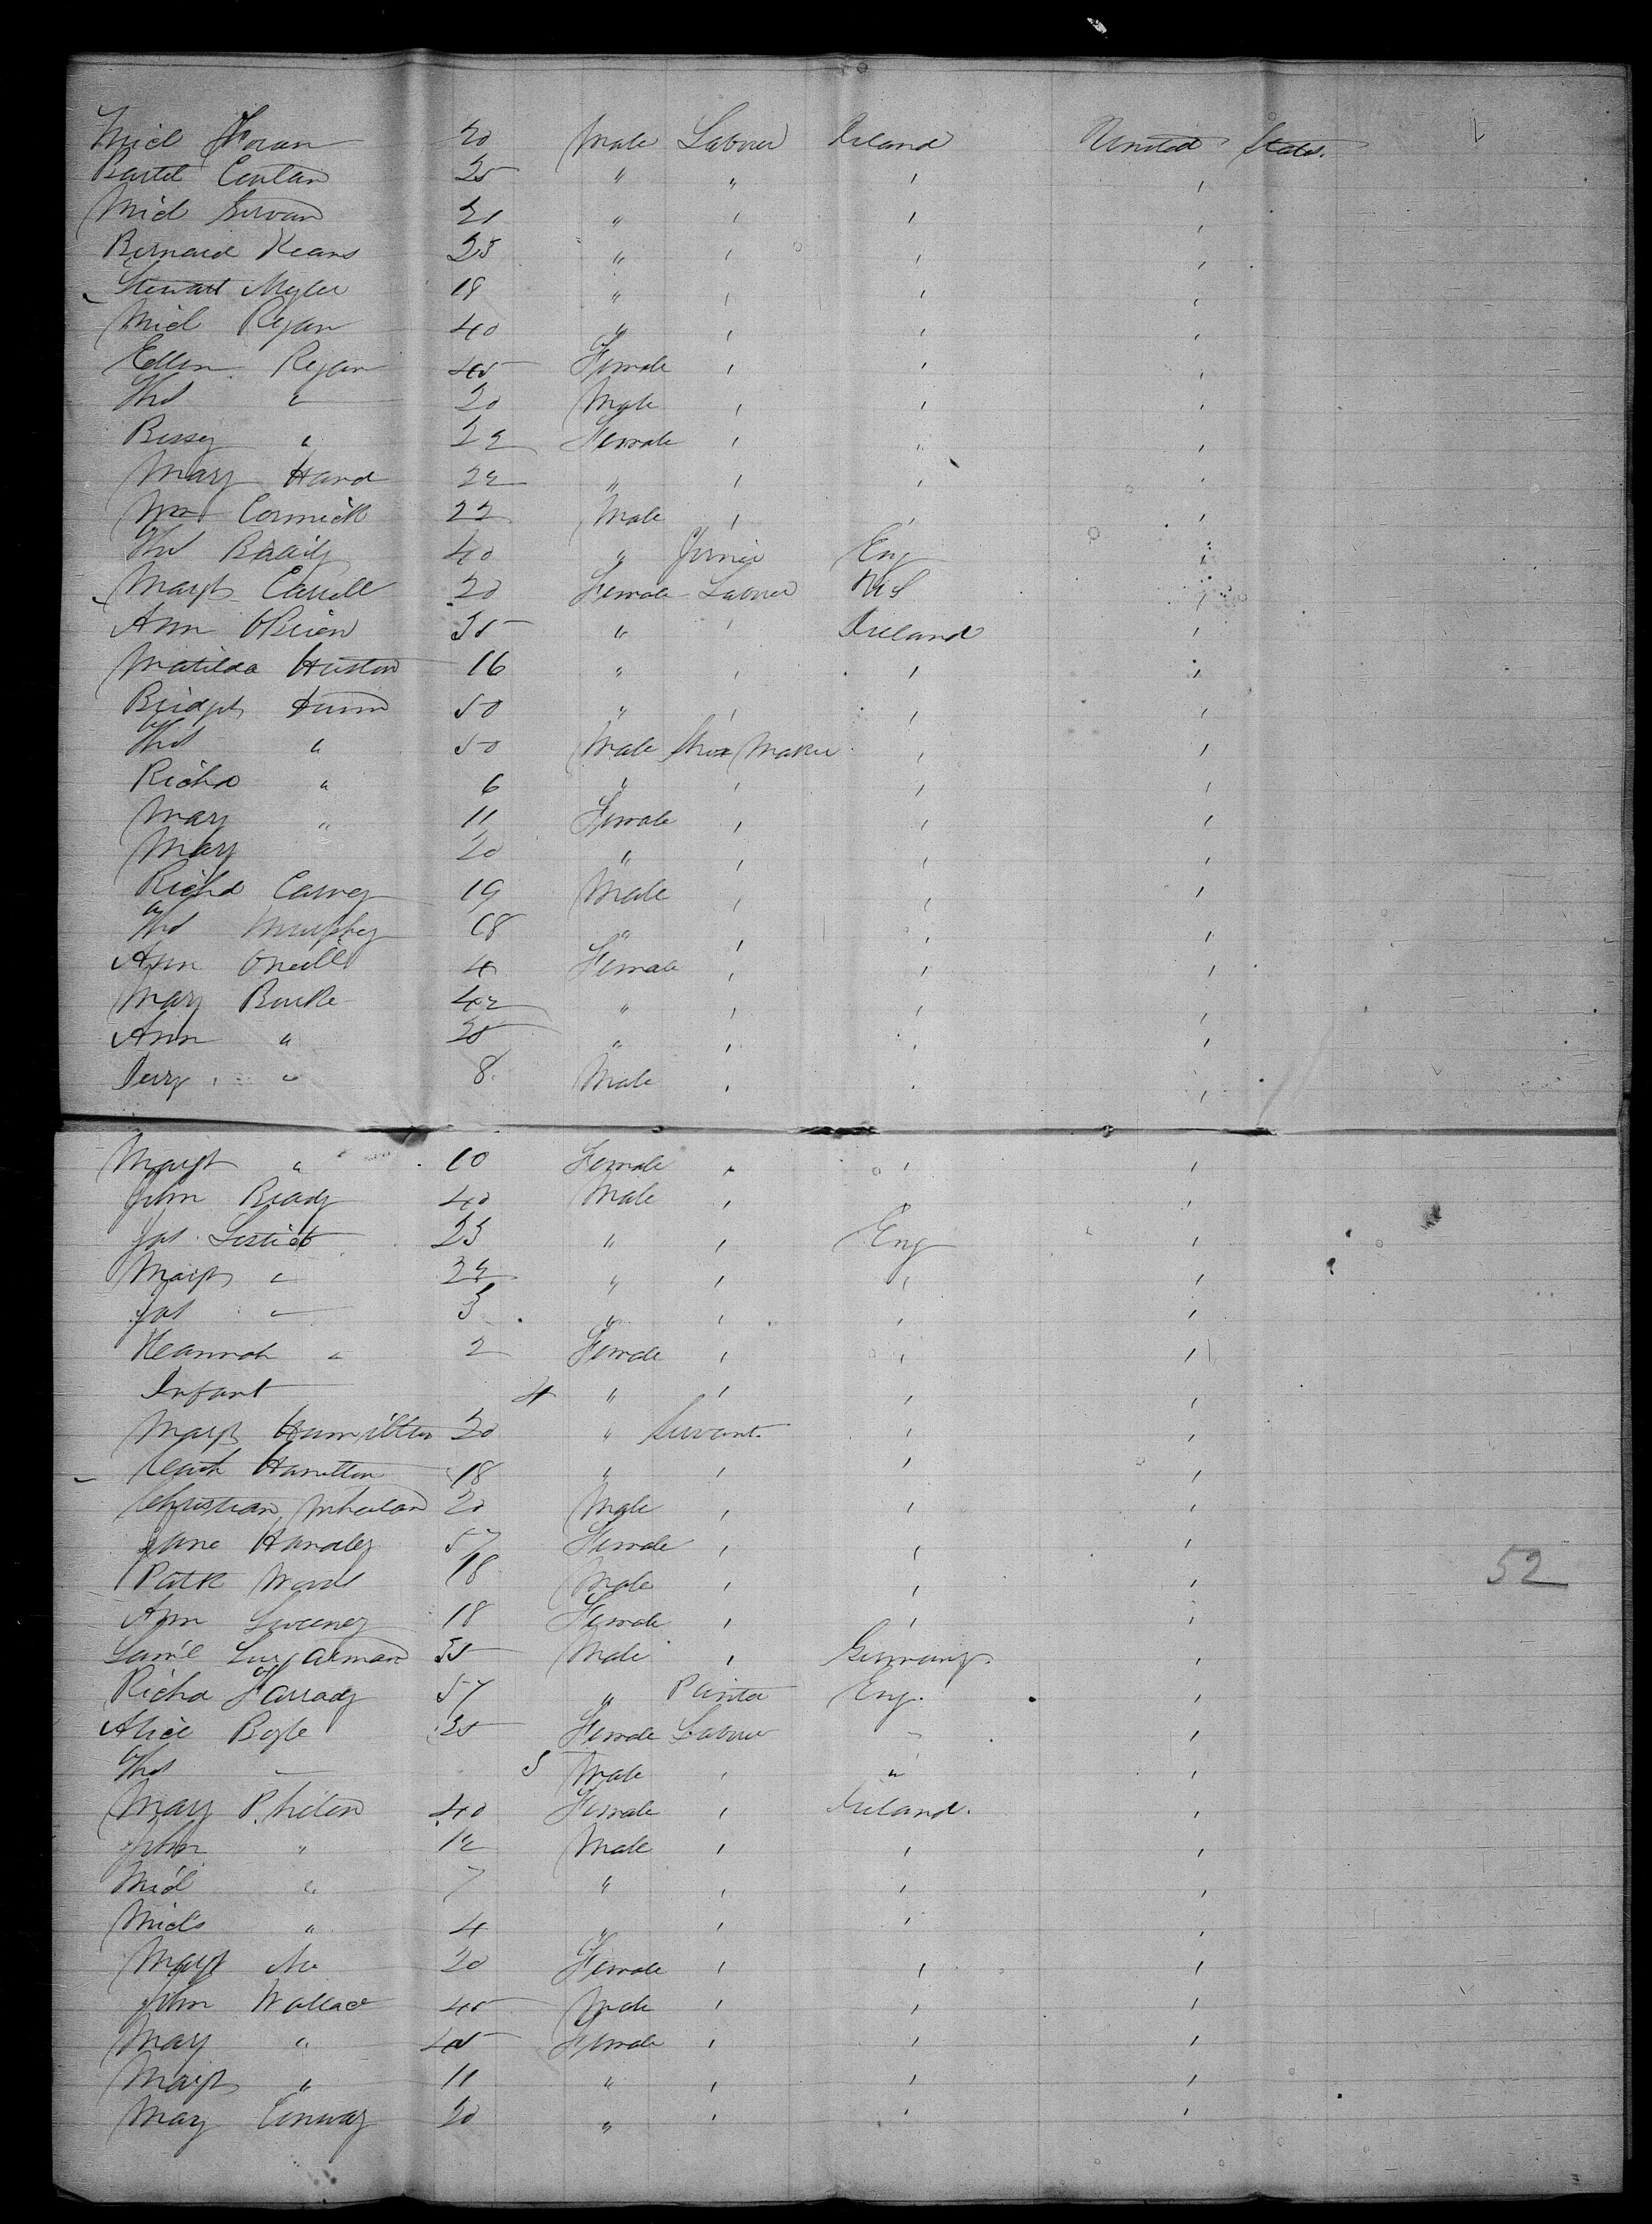 Mich Horan 20 Male Labour Ireland United States.
Bartel Conlan 25 " " ' '
Mich Girvan 21 " ' ' '
Bernard Keans 23 " ' ' '
Stewart Myler 18 " ' ' '
Mich Ryan 40 " ' ' '
Ellen Ryan 45 Female ' ' '
Thos " 20 Male ' ' '
Bessy " 22 Female ' ' '
Mary Hand 22 " ' ' '
Wm Cormick 22 Male ' ' '
Thos Brady 40 " Joiner Eng '
Margt Carroll 20 Female Labour '
Ann OBrien 35 " ' Ireland '
Matilda Huston 16 " ' ' '
Bridget 50 " ' ' '
Thos " 50 Male Shoe Maker ' '
Richd " 6 " ' ' '
Mary " 11 Female ' ' '
Mary " 20 " ' ' '
Richd Carney 19 Male ' ' '
Thos Murphy 18 " ' ' '
Ann Oneill 4 Female ' ' '
Mary Burke 42 " ' ' '
Ann " 20 " ' ' '
" 8 Male ' ' '
Margt " 10 Female " ' '
John Brady 40 Male ' '
Jas 23 " ' Eng '
Margt " 24 " ' ' '
Jas " 3 " ' ' '
Heannah " 2 Female ' ' '
Infant 4 " ' ' '
Margt Hamilton 20 " Servant. ' '
Hamilton 18 " ' ' '
Christian Whelan 20 Male ' ' '
Jane Handley 57 Female ' ' '
Patk Woods 18 Male ' ' '
Ann Sweeney 18 Female ' ' '
Saml 35 Male ' Germany. '
Richd 57 " Painter Eng. '
Alice Boyle 35 Female Labour " '
Thos " 5 Male ' " '
Mary 40 Female ' Ireland. '
John " 12 Male ' ' '
Mich " 7 " ' ' '
Michs " 4 " ' ' '
Margt 20 Female ' ' '
John Wallace 45 Male ' ' '
Mary " 45 Female ' ' '
Margt " 11 " ' ' '
Mary Conway 20 " ' ' '
52